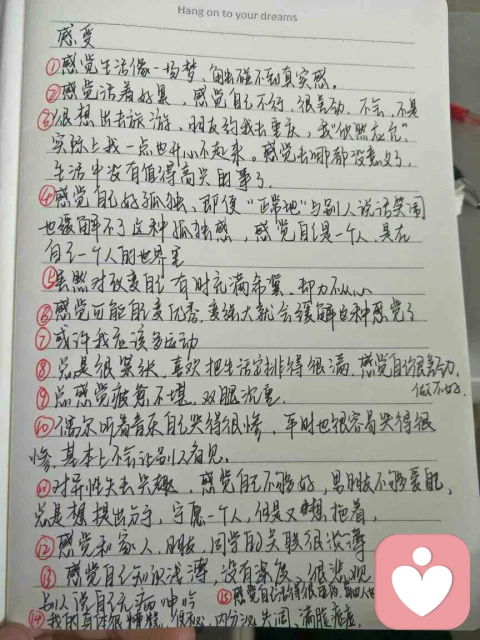 Hang on to your dreams
感受
①感觉生活像一场梦、触碰不到真实感。
②感觉活着好累，感觉自己不行，很差劲、不会、不是
③很想出去旅游，朋友约我去重庆，我"欣然应允"
实际上我一点也开心不起来。感觉去哪都没意义了，
生活中没有值得高兴的事了。
④感觉自己好孤独、即使"正常地"与别人说话笑闹
也缓解不了这种孤独感，感觉自己是一个人，是在
自己一个人的世界里
⑤虽然对改变自己有时充满希冀，却力不从心
⑥感觉可能自己变优秀、变强大就会缓解这种感觉了
⑦或许我应该多运动
⑧总是很紧张，喜欢把生活安排得很满，感觉自己很差劲，
做不好。
⑨总感觉疲惫不堪，双眼沉重
⑩偶尔听着音乐自己哭得很惨，平时也很容易哭得很
惨，基本上不会让别人看见。
⑪对异性失去兴趣，感觉自己不够好，男朋友不够爱我，
总是想提出分手，宁愿一个人，但是又想拖着，
⑫感觉和家人、朋友，同学的关联很淡薄
⑬感觉自己知识浅薄，没有深度，很悲观
别人说自己无病呻吟
⑮感觉自己活得很
⑭我的身体很糟糕，便秘，内分泌失调，满脸痘痘